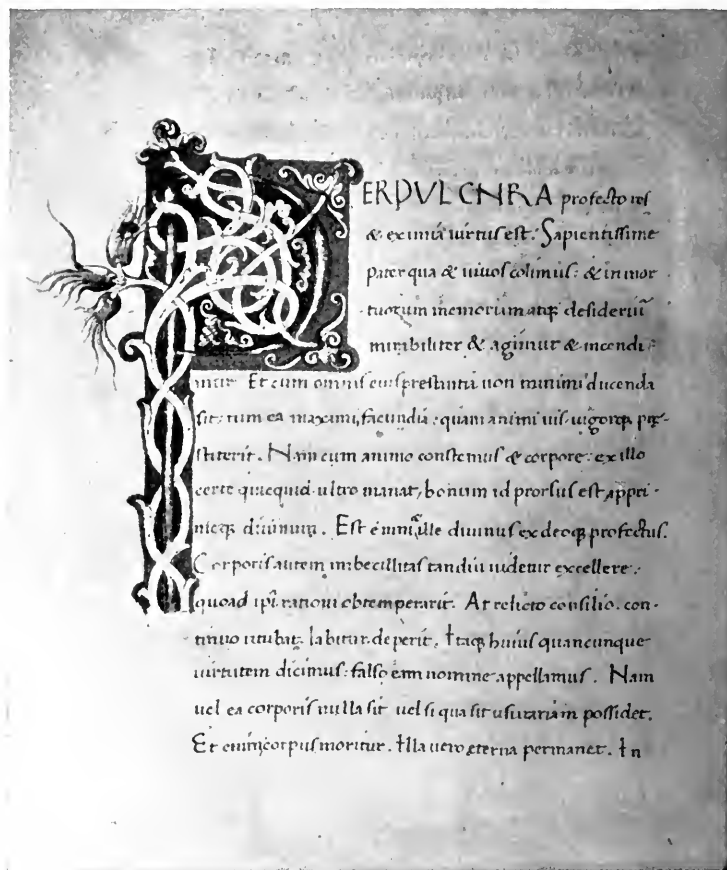 PERPVLCHRA profecto res
& eximia uirtus est. Sapientissime
pater qua & uiuos colimus: & in mor
tuorum memoriam atq; desideriū
mirabiliter & agimur & incendi
mur Et cum omnis eius prestantia non minimi ducenda
sit: tum ea maximi, facundia: quam animi uis uigorq; pre-
stiterit. Nam cum animo constemus & corpore: ex illo
certe quicquid ultro manat, bonum id prorsus est appri-
meq; diuinum. Est enim ille diuinus ex deoq; profectus.
Corporis autem imbecillitas tandiu uidetur excellere:
quoad ipi rationi obtemperarit. At relicto consilio. con-
tinuo titubat. labitur. deperit. Itaq; huius quancunque
uirtutem dicimus: falso eam nomine appellamus. Nam
uel ea corporis nulla sit uel si qua sit usurariam possidet.
Et enim corpus moritur. Illa uero eterna permanet. In